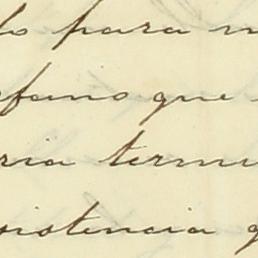 lo para m
efano que
ria termi
sistencia q